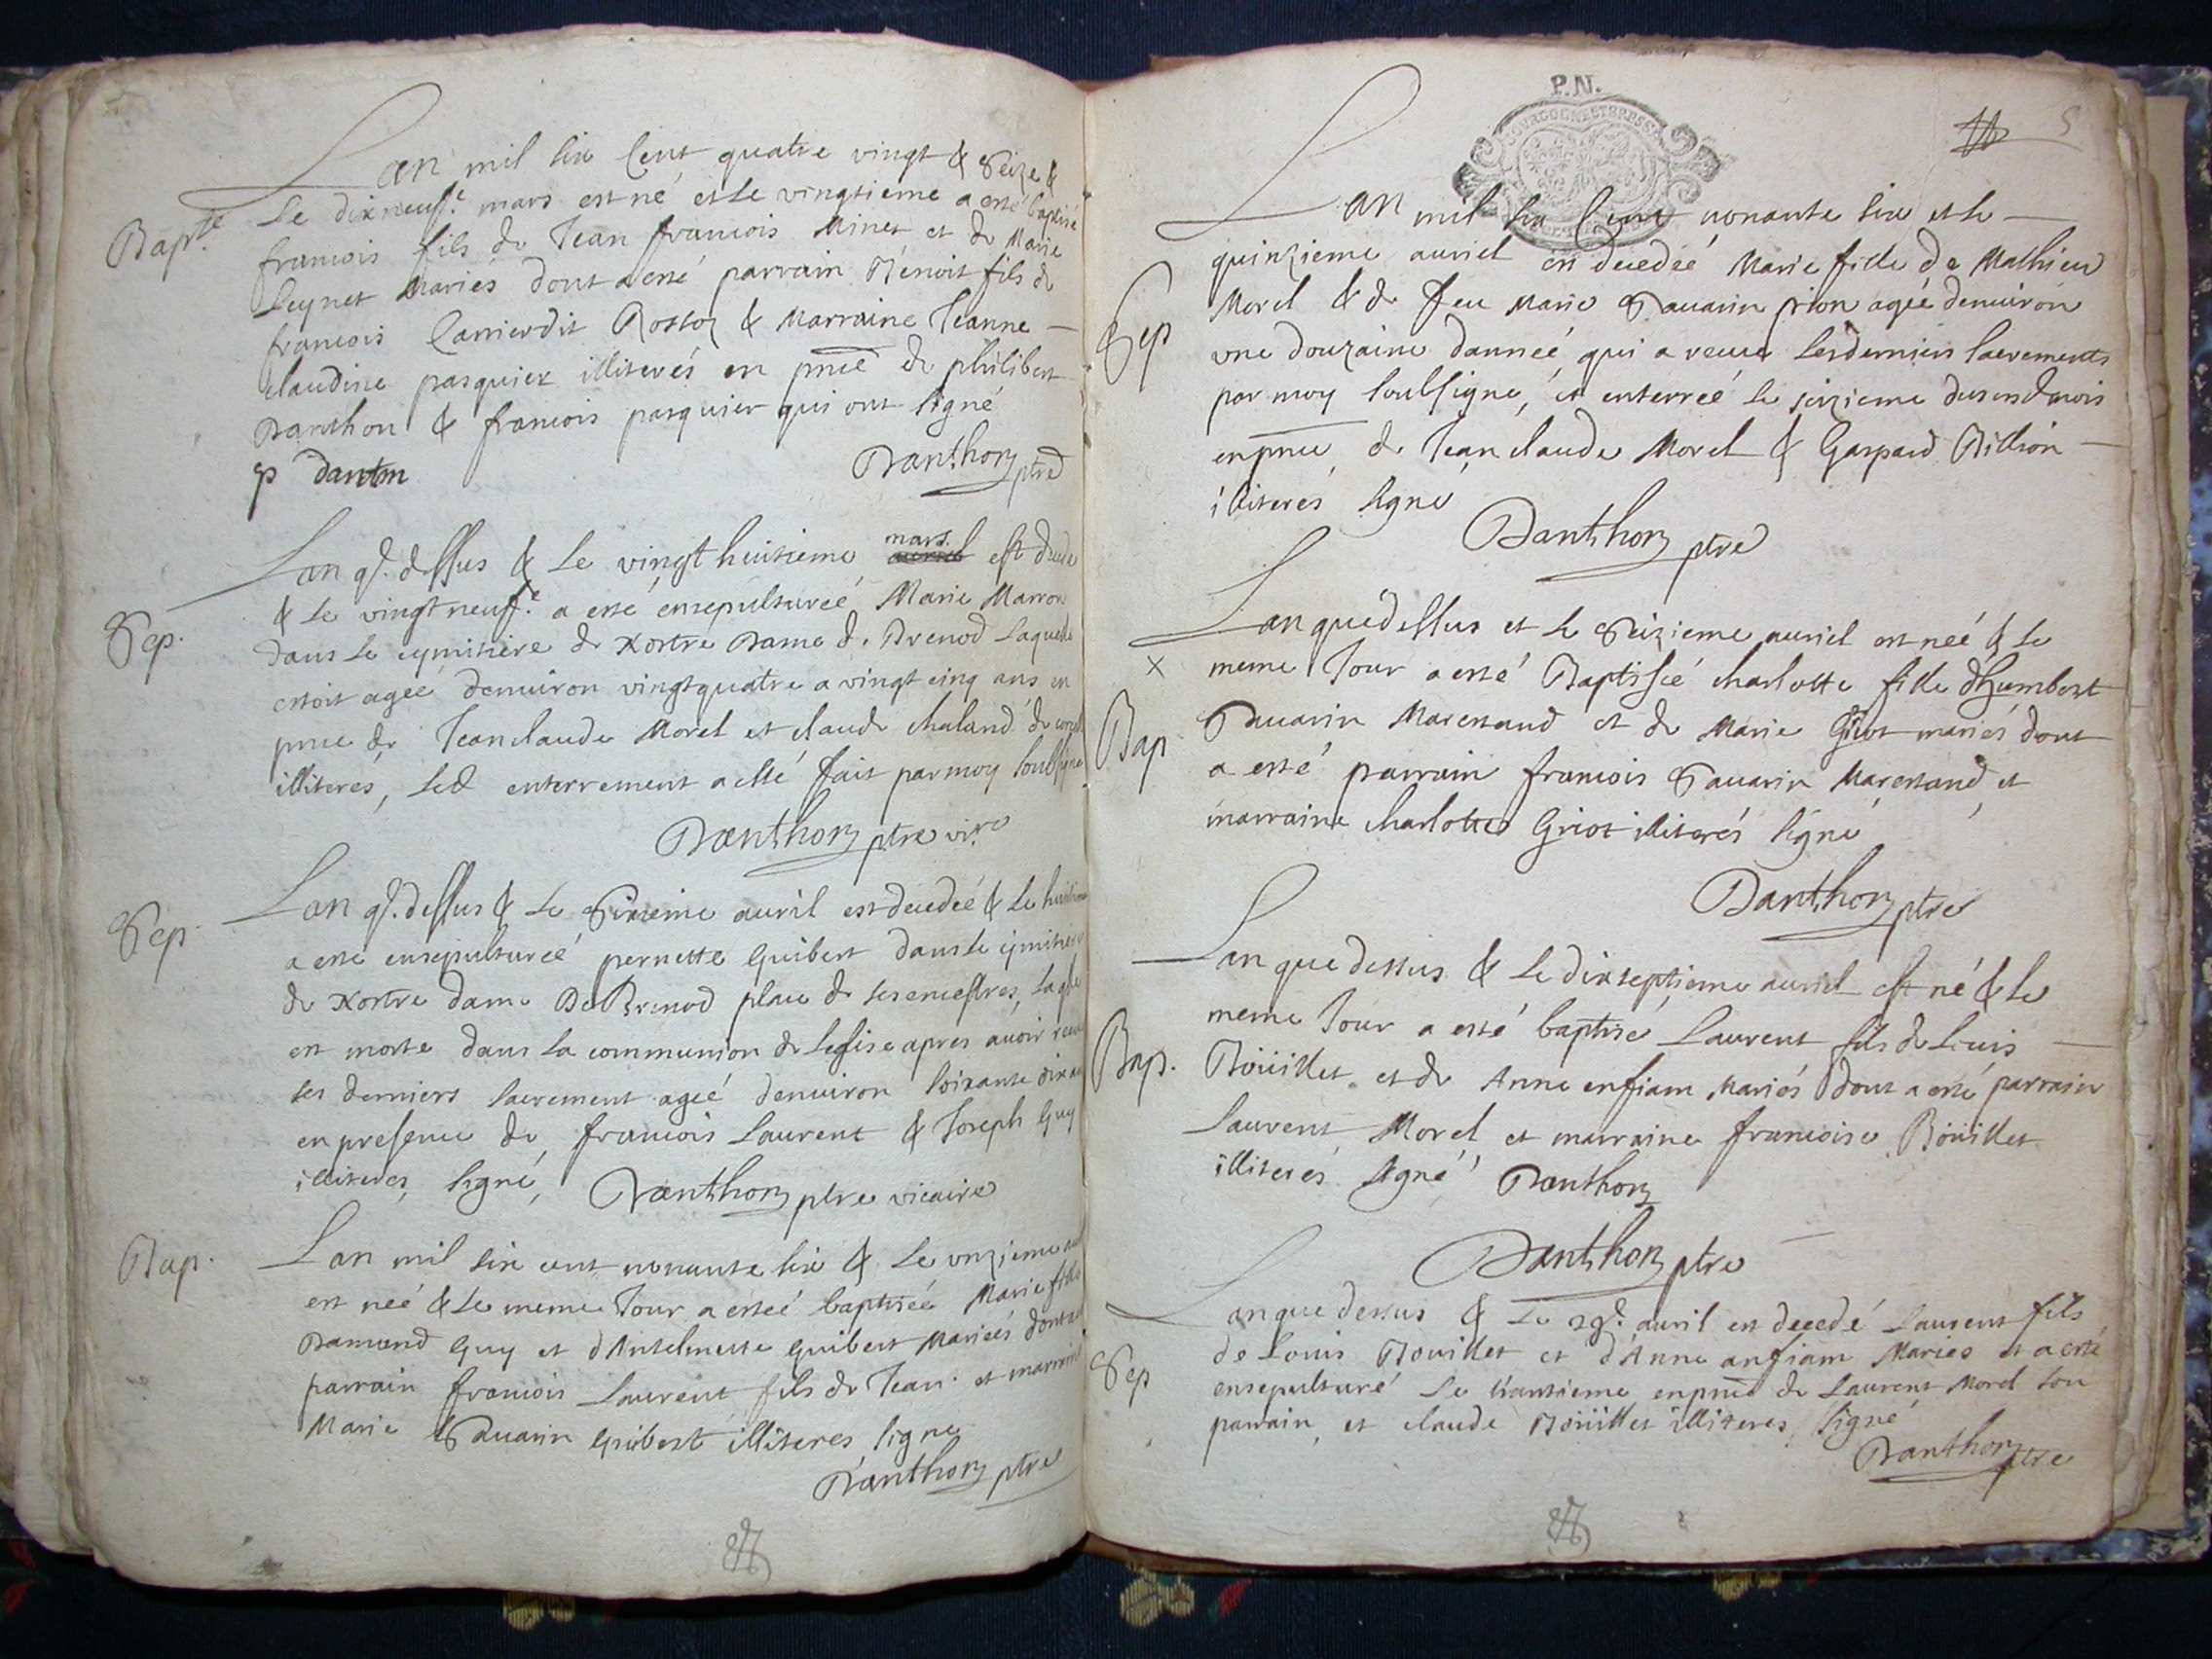 Lan mil six cent quatre vingt & seize &
Bap.te
le dixneuf.e mars est né et le vingtieme a esté baptisé
francois fils de Jean francois Minet et de Marie
Seynet Mariés dont a esté parrain Benoit fils de
francois Carrierdit & Marraine Jeanne
claudine pasquier illiterés en pnce de philibert
Danthon & francois pasquier qui ont signé
p dantm Danthon ptre
Lan q. dessus & le vingt huitieme mars est
& le vingtneuf.e a esté ensepulturée Marie Marron
Sep.
dans le cymitiere de Nostre Dame de Brenod laquelle
estoit agée denuiron vingtquatre a vingt cinq ans en
pnce de Jeanclaude Morel et claude chaland de
illiterés, led enterrement a esté fait par moy soubsigné
Danthon ptre vi.re
Lan q. dessus & le Sixieme auril est decedée & le huitieme
Sep.
a esté ensepulturée pernette Guibert dans le cymitiere
de Nostre dame De Brenod place de ses encestres, laqlle
est morte dans la communion de leglise apres auoir receu
ses derniers sacrement agée denuiron soixante dix ans
en presence de francois Laurent & Joseph Guy
illiteres signé, Danthon ptre vicaire
Bap.
Lan mil six cent nonante six & le vnzieme
est née & le meme Jour a estée baptisée Marie fille
Damand Guy et dAntelmette Guibert Mariés dont a
parrain francois Laurent fils de Jean et marraine
Marie Sauarin Guibert illiteres signe
Danthon ptre
P.N.
BOURGOGNE ET BRESSE
5
Lan mil six Cent nonante six et le
quinzieme auriel est decedée Marie fille de Mathieu
Sep
Morel & de feu Marie Sauarin prion agée denuiron
vne douzaine dannée, qui a receue les derniers sacrements
par moy soubsigné, et enterrée le seizieme dususd mois
enpnce de Jeanclaude Morel & Gaspard Billion
illiterés signé
Danthon ptre
Lan quedessus et le Seizieme auriel est née & le
x
meme Jour a esté Baptisée charlotte fille dhumbert
Bap
Sauarin Marchand et de Marie Griot mariés dont
a esté parrain francois Sauarin Marchand et
marraine charlotte Griot illiterés signé
Danthon ptre
Lan que dessus & le dixseptieme auriel est né & le
meme Jour a esté baptisé Laurent fils de Louis
Bap.
Boüillet et de Anne enfiam Mariés dont a esté parrain
Laurent Morel et marraine francoise Boüillet
illiterés signé Danthon
Danthon ptre
Lan que dessus & le 29.e auril est decedé Laurent fils
de Louis Bouillet et dAnne anfiam Mariés et a esté
Sep
ensepulturé le trantieme enpnce de Laurent Morel son
parrain, et claude Boüillet illiteres, signé
Danthon ptre